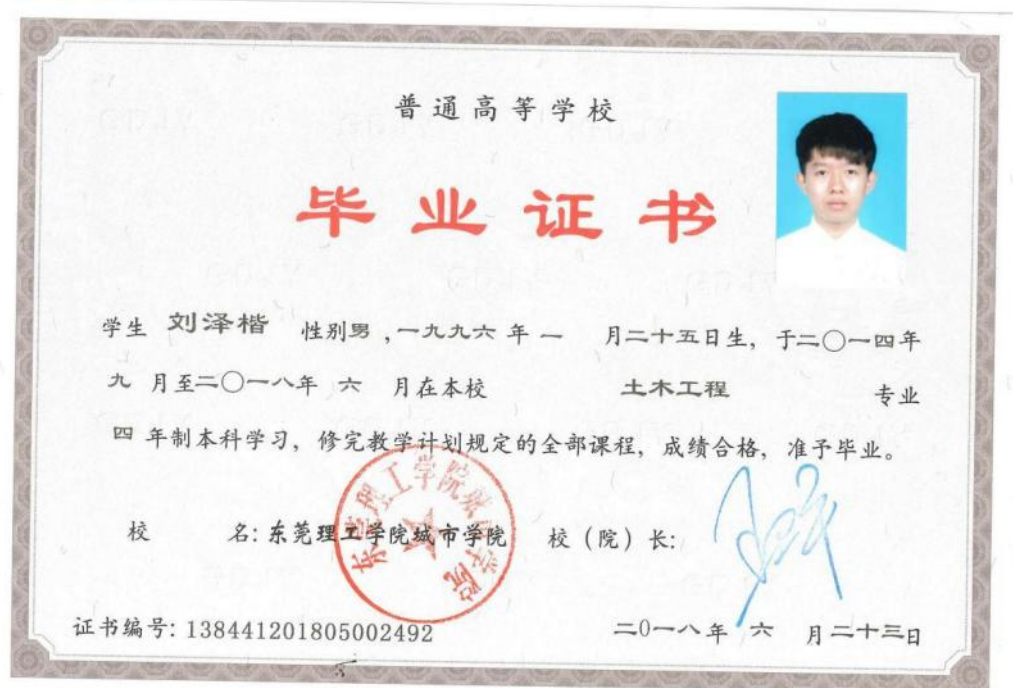 普通高等学校
毕业证书
学生 刘泽楷 性别男,一九九六年一 月二十五日生, 于二〇一四年
九 月至二〇一八年 六 月在本校 土木工程 专业
四 年制本科学习, 修完教学计划规定的全部课程, 成绩合格, 准予毕业。
校 名: 东莞理工学院城市学院 校(院)长:
东莞理工学院城市学院
证书编号: 138441201805002492 二0一八年 六 月二十三日